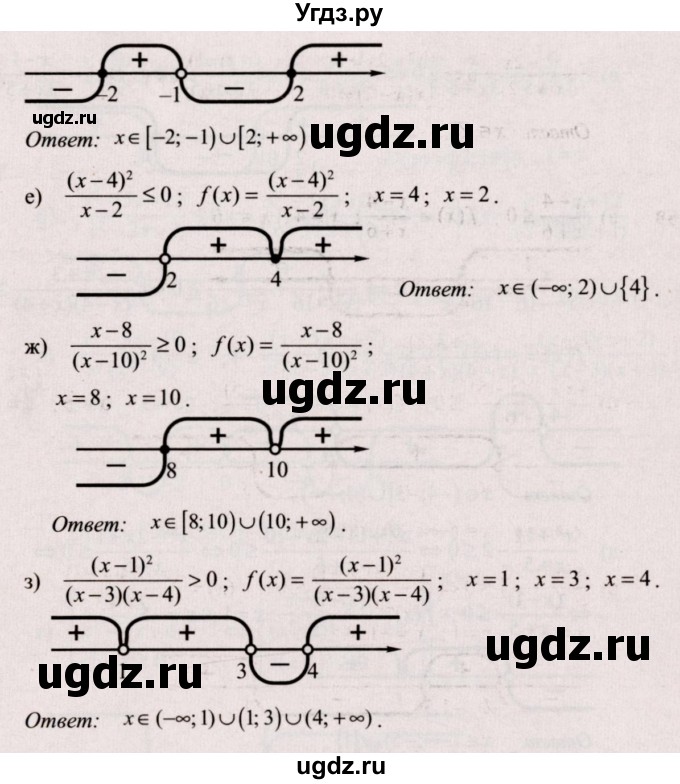 Угдз.ру
− + − +
−2 −1 2
ugdz.ru
Ответ: x∈[−2;−1)∪[2;+∞)
ugdz.ru
е) (x−4)²/(x−2) ≤ 0; f(x) = (x−4)²/(x−2); x=4; x=2.
− + +
2 4
Ответ: x∈(−∞;2)∪{4}.
ж) (x−8)/(x−10)² ≥ 0; f(x) = (x−8)/(x−10)²;
ugdz.ru
x=8; x=10.
− + +
8 10
Ответ: x∈[8;10)∪(10;+∞).
з) (x−1)²/((x−3)(x−4)) > 0; f(x) = (x−1)²/((x−3)(x−4)); x=1; x=3; x=4.
+ + − +
1 3 4
ugdz.ru
ugdz.ru
Ответ: x∈(−∞;1)∪(1;3)∪(4;+∞).
ugdz.ru